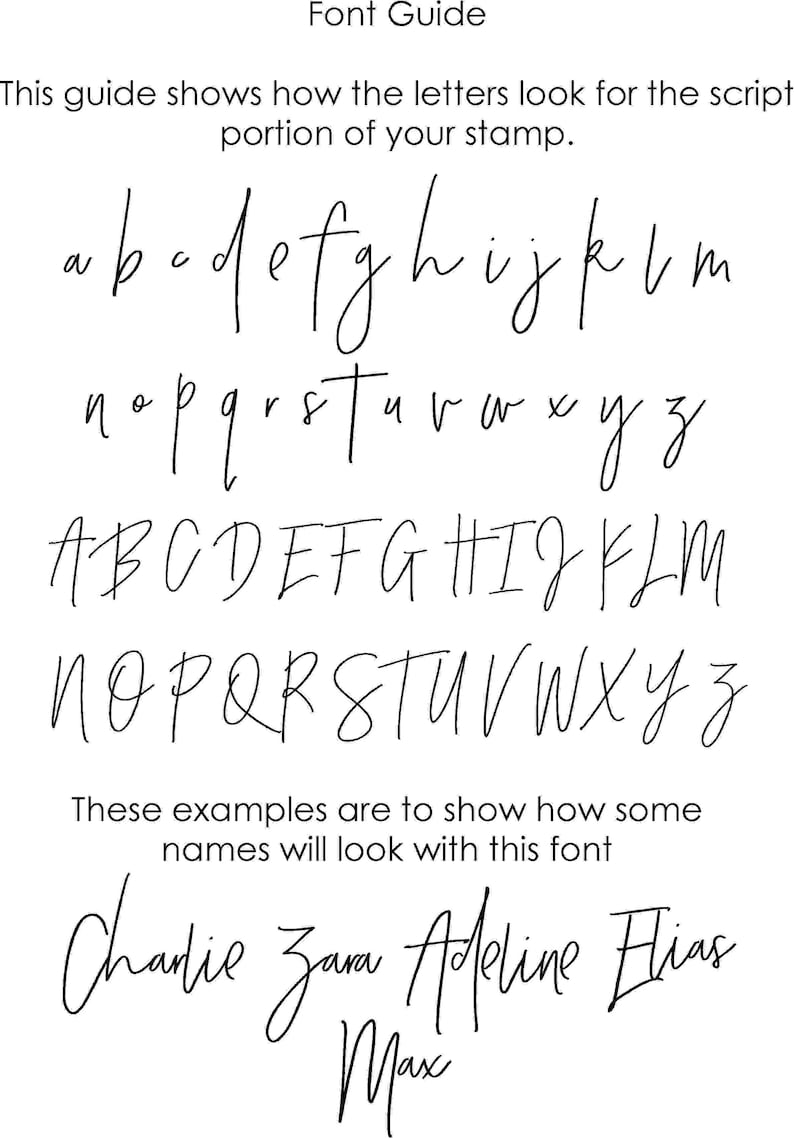 Font Guide
This guide shows how the letters look for the script
portion of your stamp.
a b c d e f g h i j k l m
n o p q r s t u v w x y z
A B C D E F G H I J K L M
N O P Q R S T U V W X Y Z
These examples are to show how some
names will look with this font
Charlie Zara Adeline Elias
Max